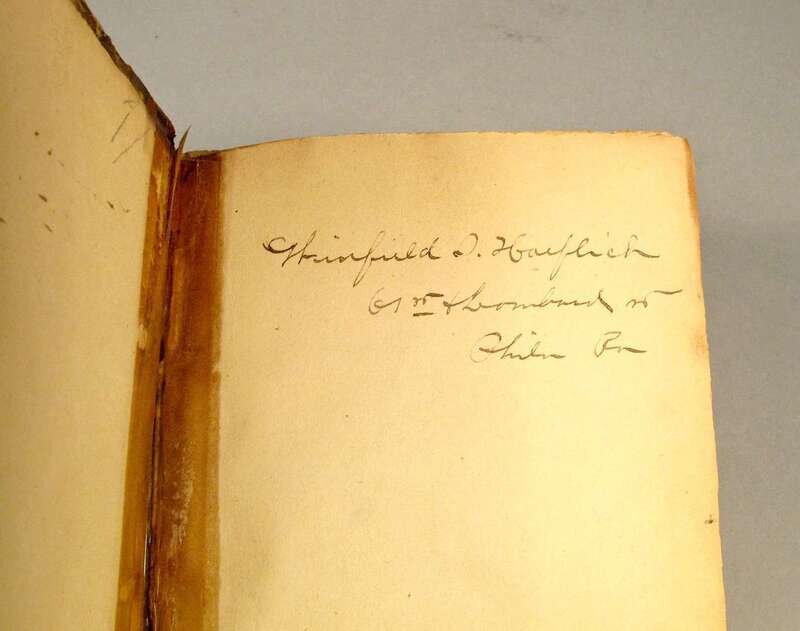 Winfield S. Hoeflich
61 st & Lombard st
Phila Pa